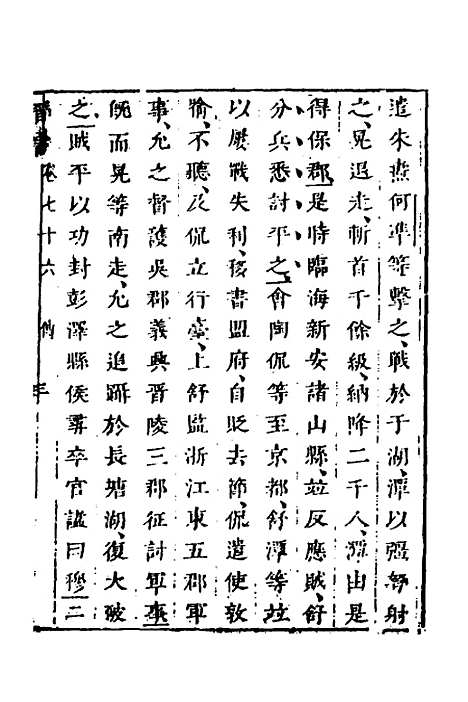 遣朱燾何準等擊之戰於于湖潭以強弩射
之晃退走斬首千餘級納降二千人潭由是
得保郡是時臨海新安諸山縣竝反應賊舒
分兵悉討平之會陶侃等至京都舒潭等竝
以屢戰失利移書盟府自貶去節侃遣使敦
愉不聽及侃立行臺上舒監浙江東五郡軍
事允之督護吳郡義興晉陵三郡征討軍事
旣而晃等南走允之追躡於長塘湖復大破
之賊平以功封彭澤縣侯尋卒官諡曰穆二
晉書卷七十六 傳